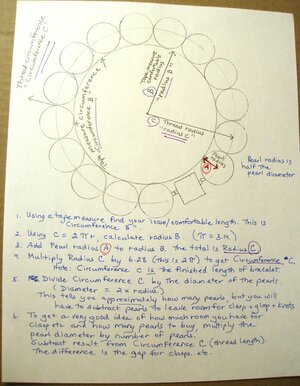 Thread circumference
"Circumference C"
Tape measure circumference
"Circumference B"
Tape measure
radius
B
"radius B"
C
Thread radius
"radius C"
Pearl
radius
A
Pearl radius is
half the
pearl diameter
1. Using a tape measure find your loose/comfortable length. This is
"Circumference B"
2. Using C = 2πr, calculate radius B (π = 3.14)
3. Add Pearl radius A to radius B, the total is Radius C
4. Multiply Radius C by 6.28 (this is 2π) to get Circumference "C
Note: Circumference C is the finished length of bracelet.
5. Divide Circumference C by the Diameter of the pearls
(Diameter = 2x radius.)
This tells you approximately how many pearls, but you will
have to subtract pearls to leave room for clasp + gimp + knots
6. To get a very good idea of how much room you have for
Clasp etc and how many pearls to buy, multiply the
pearl diameter by number of pearls.
Subtract result from Circumference C. (thread length).
The difference is the gap for clasps. etc.